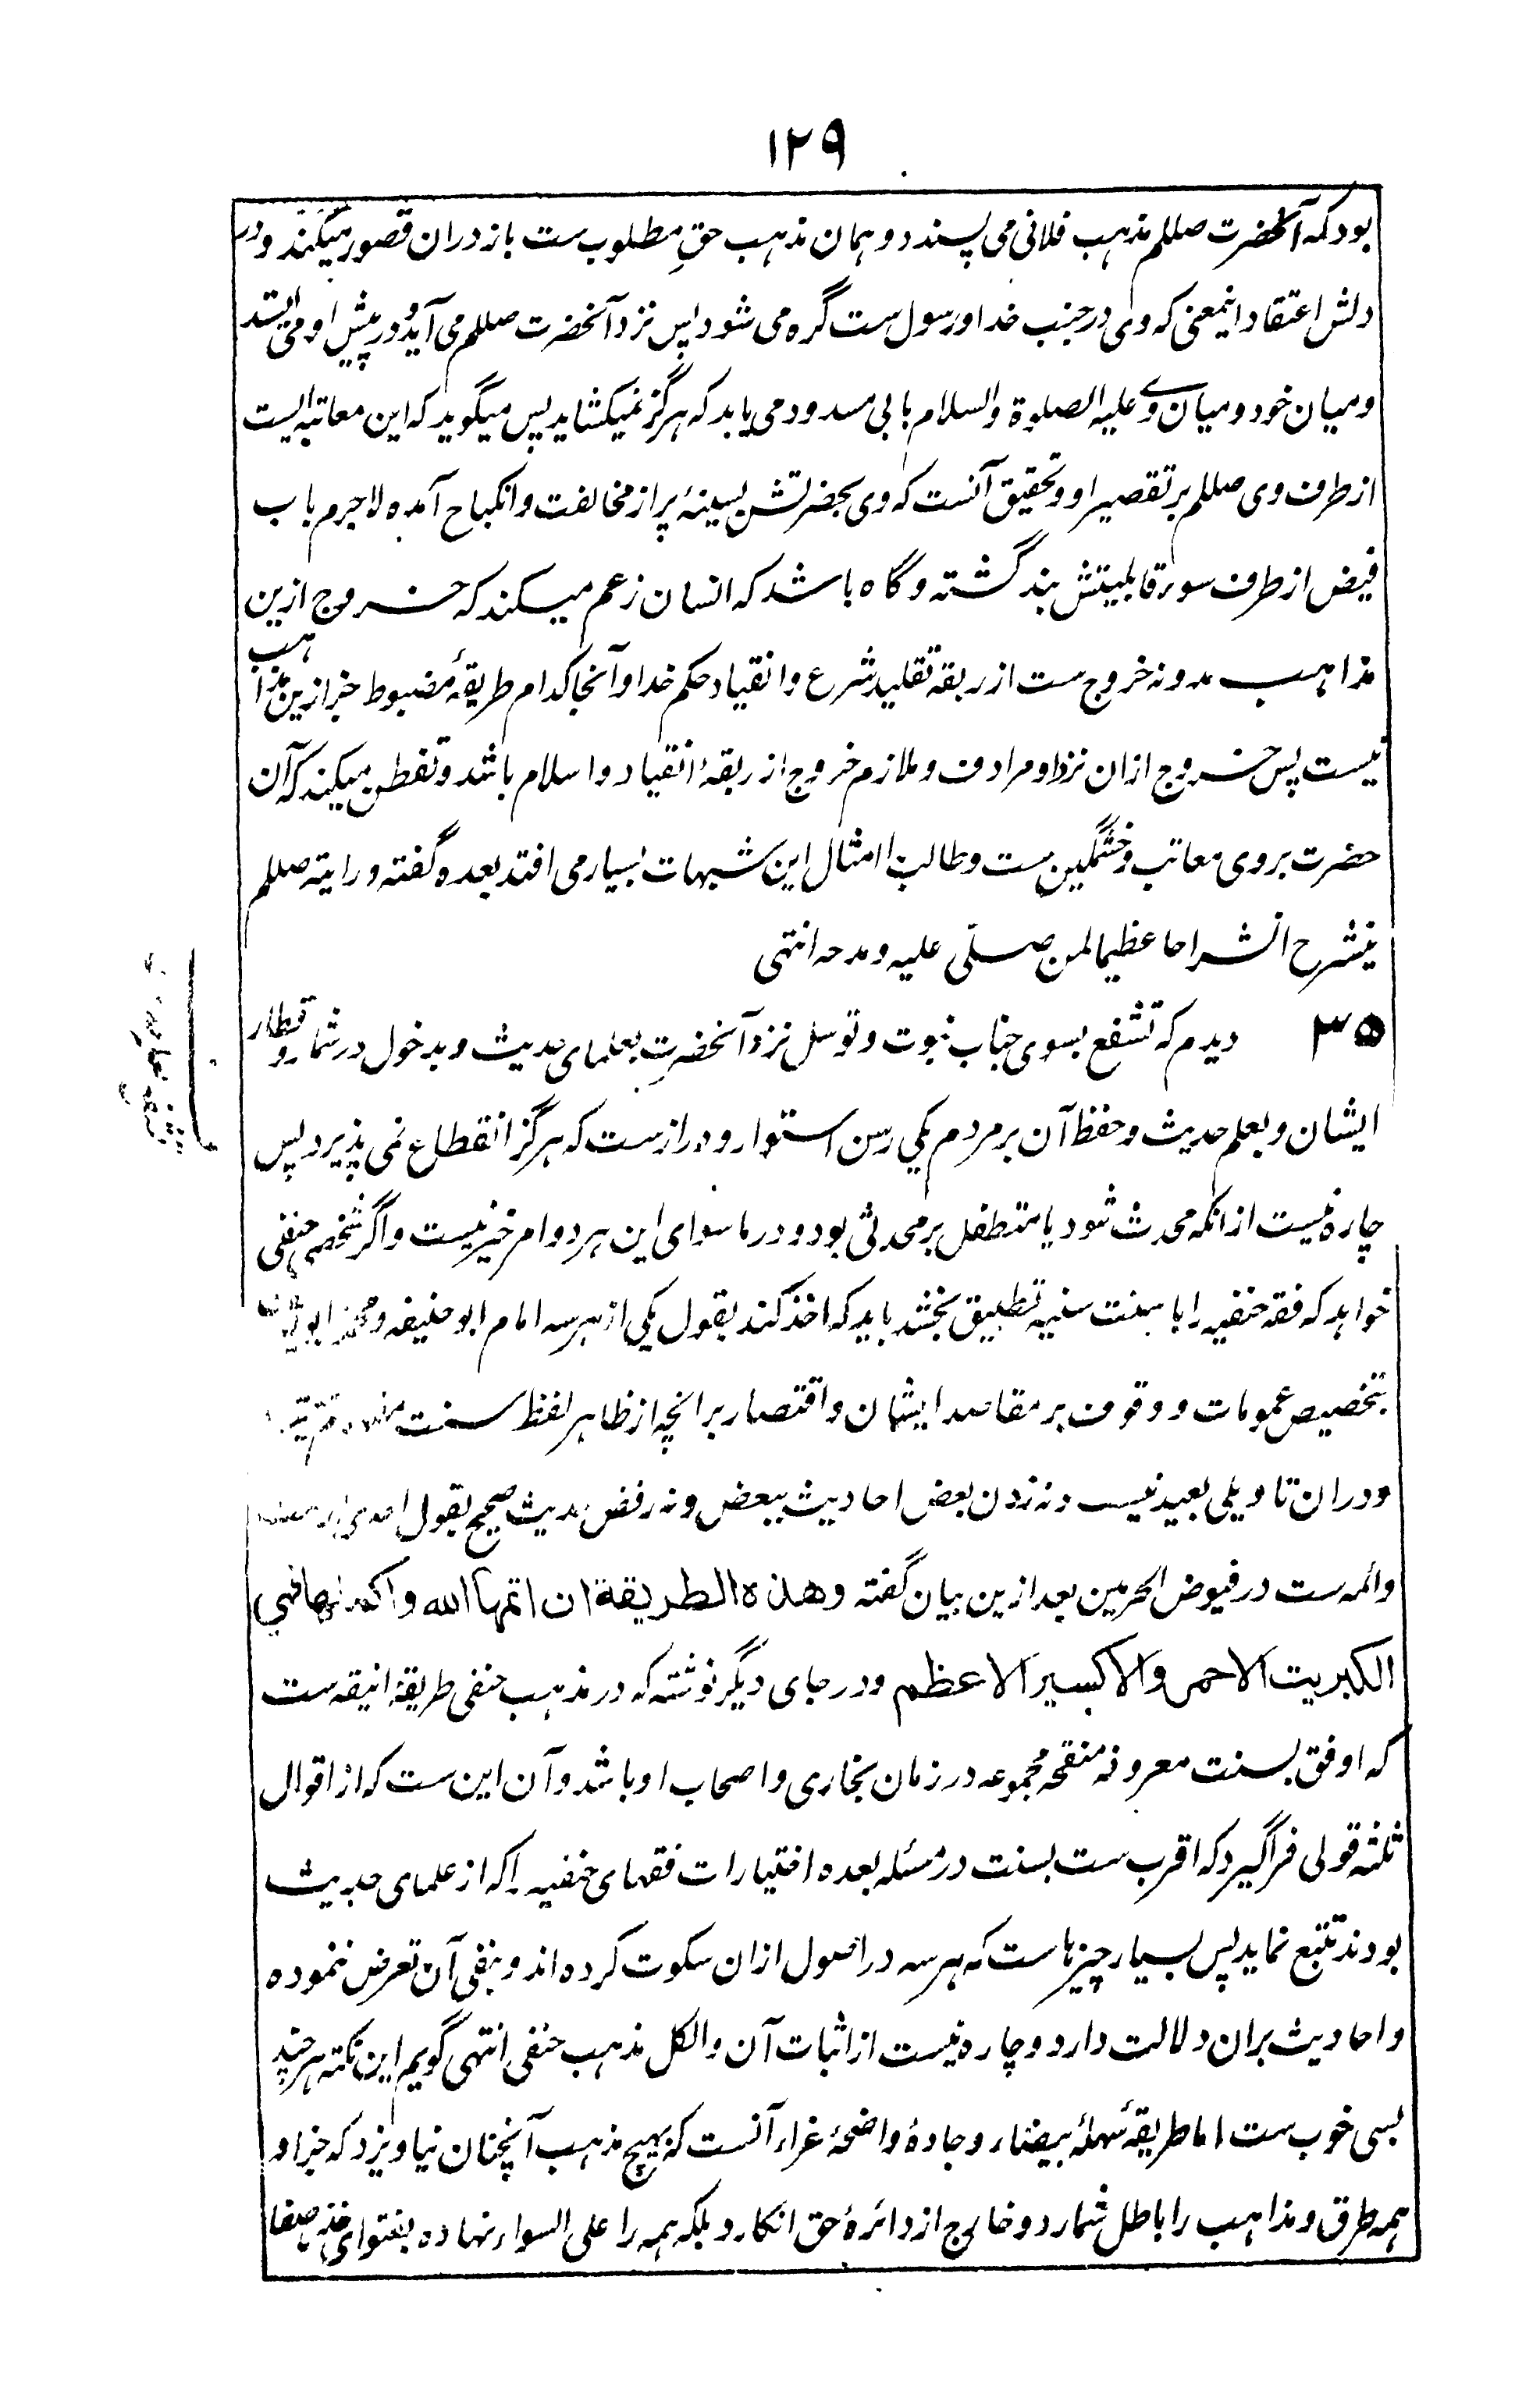 ۱۲۹
بود که آنحضرت صللم مذہب فلانی می پسندد و ہمان مذہب حقِ مطلوب ست باز دران قصور میکند و در
دلش اعتقاد اینمعنی که وی در جنب خدا و رسول ست گره می شود پس نزد آنحضرت صللم می آید و در پیش او می ایستد
و میان خود و میان وے علیه الصلوة والسلام بابی مسدود می یابد که ہرگز نمیکشاید پس میگوید که این معاتبه ایست
از طرف وی صللم بر تقصیر او و تحقیق آنست که وی بحضرتش بسینۂ پر از مخالفت و انکباح آمده لاجرم باب
فیض از طرف سوء قابلیتش بند گشته و گاه باشد که انسان زعم میکند که خروج ازین
مذاہب مدونه خروج ست از ربقه تقلید شرع و انقیاد حکم خدا و آنجا کدام طریقۂ مضبوط جز ازین مذاہب
نیست پس خروج ازان نزد او مرادف و ملازم خروج از ربقۂ انقیاد و اسلام باشد و تفطن میکند که آن
حضرت بر وی معاتب و خشمگین ست و طالب را امثال این شبہات بسیار می افتد بعده گفته و رایته صللم
ینشرح انشراحا عظیما لمن صلّی علیه و مدحه انتہی
۳۵ دیدم که تشفع بسوی جناب نبوت و توسل نزد آنحضرت بعلمای حدیث و بدخول در شمار و قطار
ایشان و بعلم حدیث و حفظ آن بر مردم یکی رسن استوار و دراز ست که ہرگز انقطاع نمی پذیرد پس
چاره نیست ازانکه محدث شود یا متطفل بر محدثی بود و در ماسوای این ہر دو امر خیر نیست و اگر شخصی حنفی
خواہد که فقه حنفیه را با سنت سنیه تطبیق بخشد باید که اخذ کند بقول یکی از ہر سه امام ابو حنیفه و محمد و ابو یوسف
بتخصیص عمومات و وقوف بر مقاصد ایشان و اقتصار بر انچه از ظاہر لفظ سنت
و دران تاویلی بعید نیست و نه زدن بعض احادیث ببعض و نه رفض حدیث صحیح بقول احدی از
و ائمه ست در فیوض الحرمین بعد ازین بیان گفته وهذه الطریقة ان اتمها الله واکملها فهي
الکبریت الاحمر والاکسیر الاعظم و در جای دیگر نوشته که در مذہب حنفی طریقۂ انیقه ست
که اوفق بسنت معروفه منقحه مجموعه در زمان بخاری و اصحاب او باشد و آن این ست که از اقوال
ثلثه قولی فراگیرد که اقرب ست بسنت در مسئله بعده اختیارات فقہای حنفیه را که از علمای حدیث
بودند تتبع نماید پس بسیار چیزہاست که ہر سه در اصول ازان سکوت کرده اند و بنفی آن تعرض ننموده
و احادیث بران دلالت دارد و چاره نیست از اثبات آن والکل مذہب حنفی انتہی گویم این نکته ہر چند
بسی خوب ست اما طریقۂ سہلۂ بیضاء و جادۂ واضحۂ غراء آنست که بہیچ مذہب آنچنان نیاویزد که جز او
ہمه طرق و مذاہب را باطل شمارد و خارج از دائرۂ حق انکارد بلکه ہمه را علی السواء نہاده بفتوای خذ ما صفا